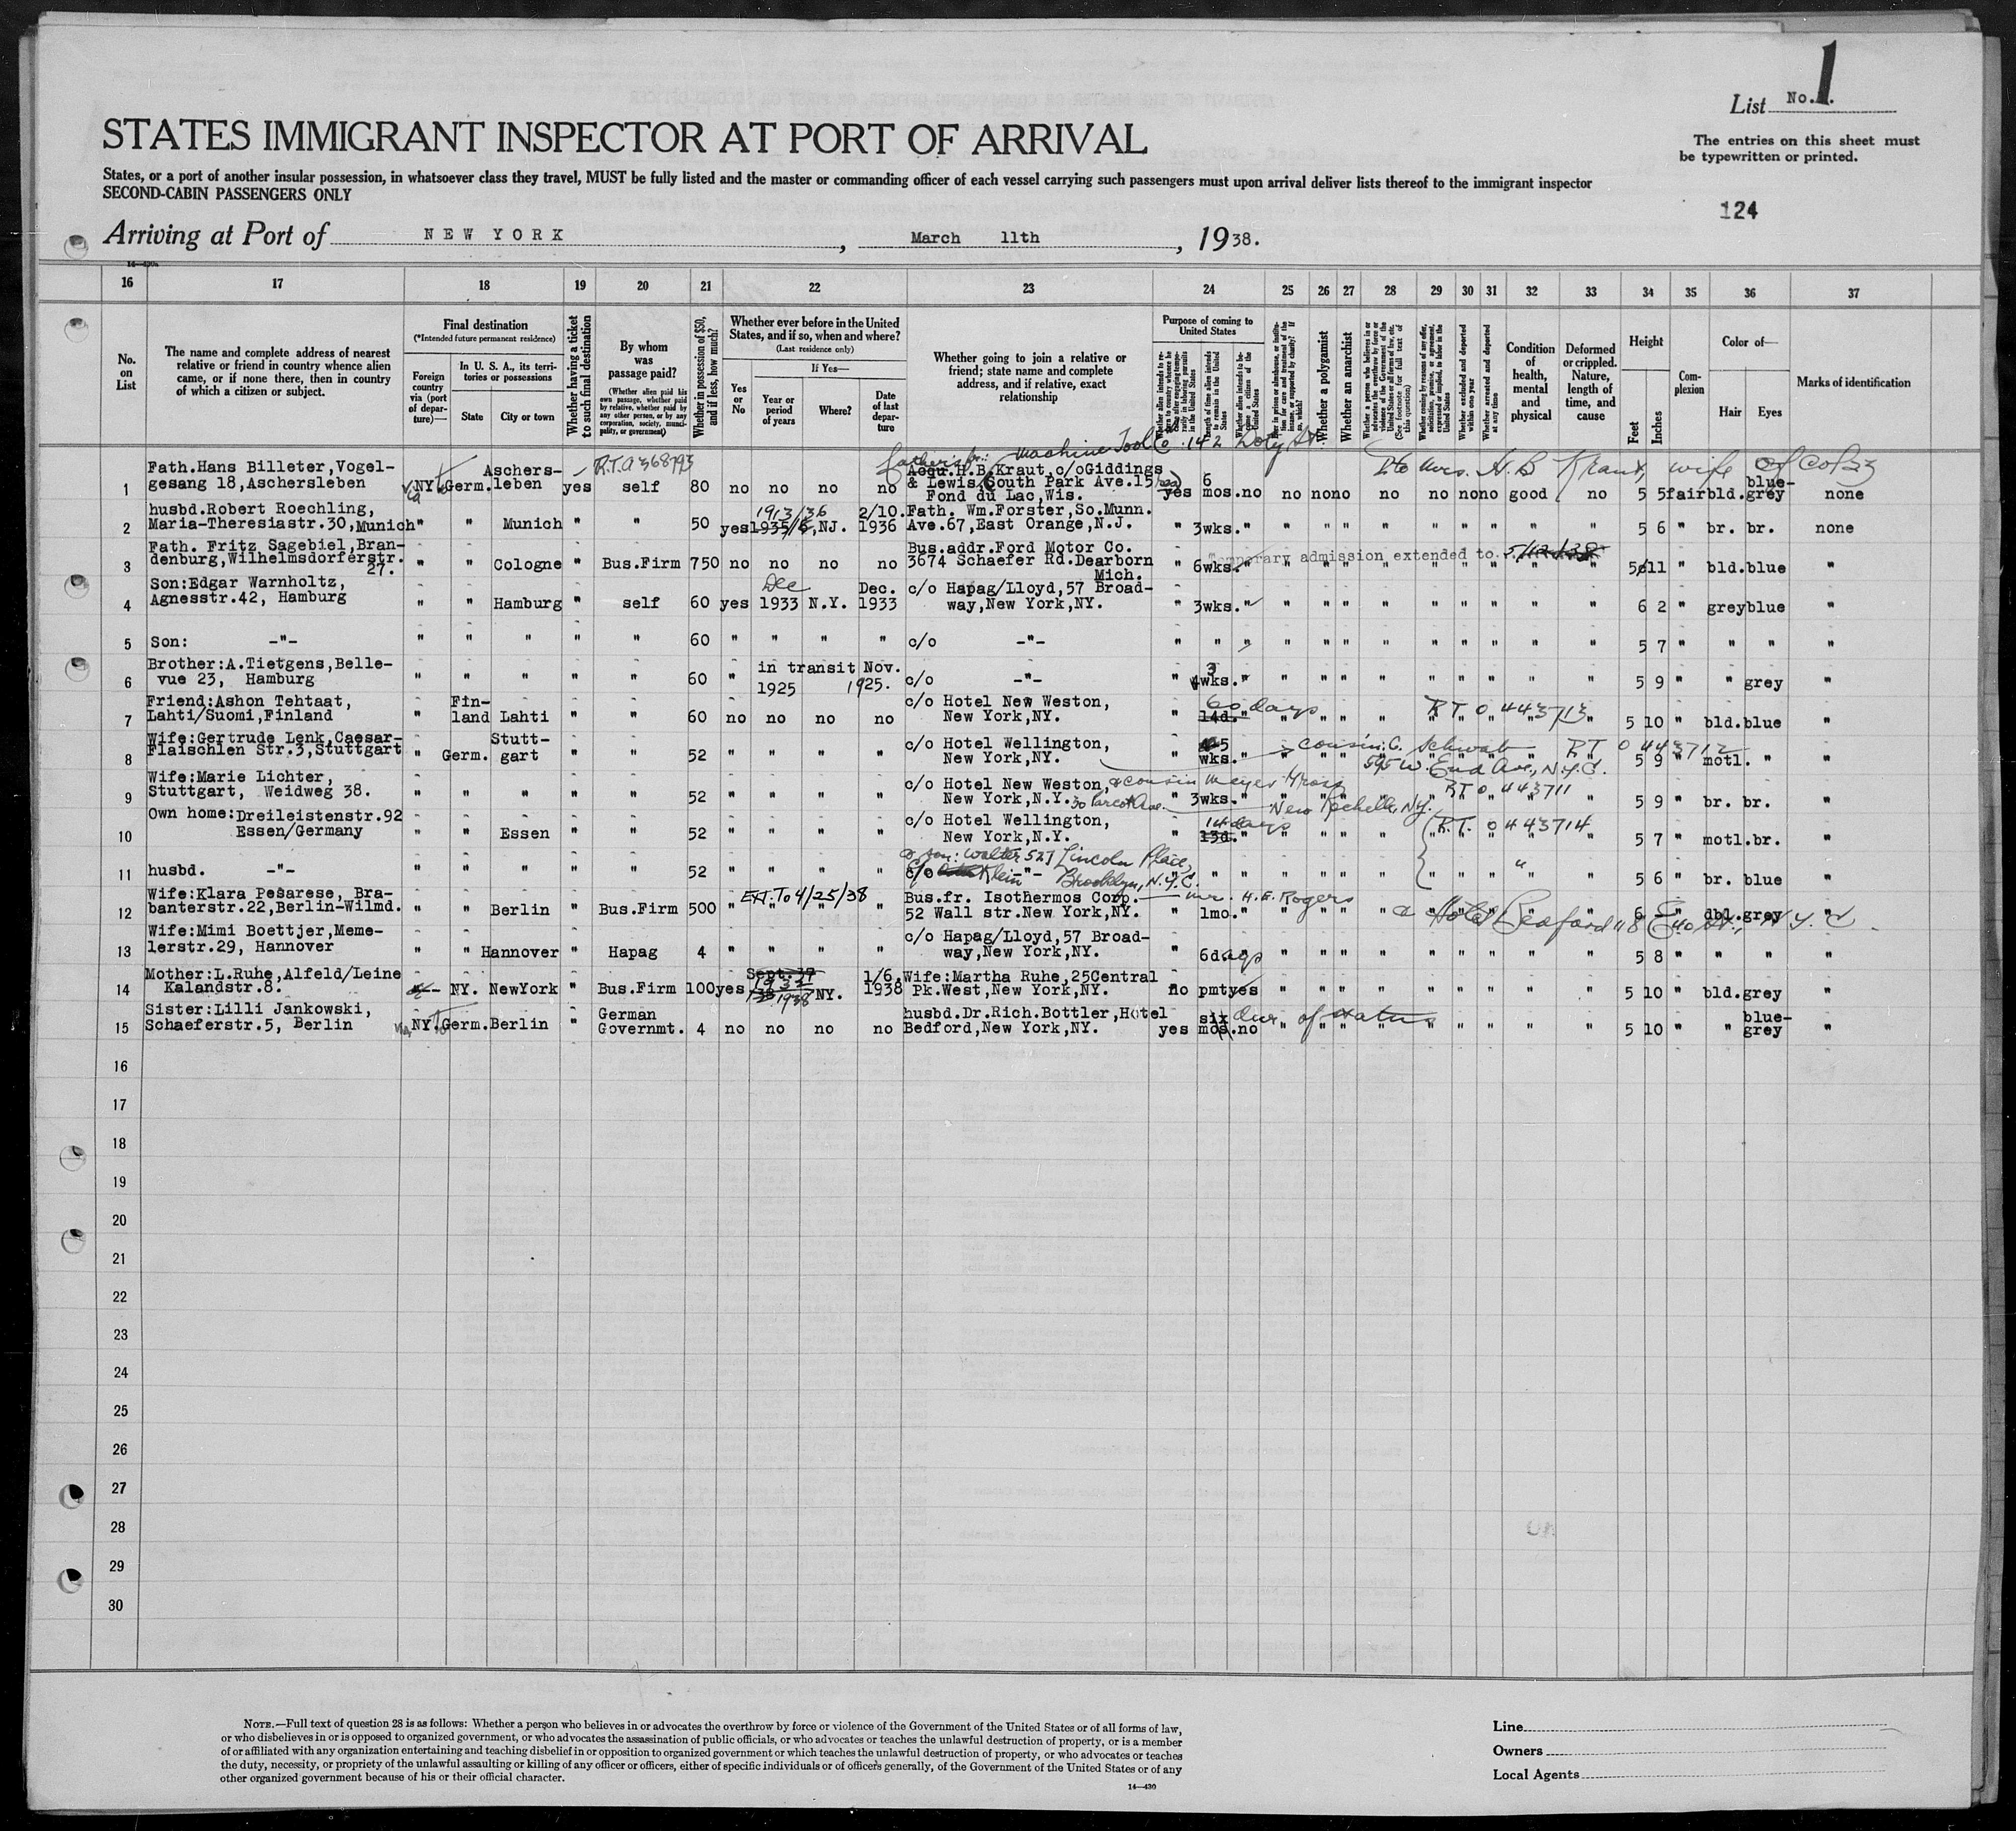 1
List No. 1.
The entries on this sheet must
be typewritten or printed.
STATES IMMIGRANT INSPECTOR AT PORT OF ARRIVAL
States, or a port of another insular possession, in whatsoever class they travel, MUST be fully listed and the master or commanding officer of each vessel carrying such passengers must upon arrival deliver lists thereof to the immigrant inspector
SECOND-CABIN PASSENGERS ONLY
124
Arriving at Port of NEW YORK, March 11th, 1938.
16 17 18 19 20 21 22 23 24 25 26 27 28 29 30 31 32 33 34 35 36 37
No. on List
The name and complete address of nearest relative or friend in country whence alien came, or if none there, then in country of which a citizen or subject.
Final destination
(*Intended future permanent residence)
Foreign country via (port of departure)—
In U. S. A., its territories or possessions
State
City or town
Whether having a ticket to such final destination
By whom was passage paid?
(Whether alien paid his own passage, whether paid by relative, whether paid by any other person, or by any corporation, society, municipality, or government)
Whether in possession of $50, and if less, how much?
Whether ever before in the United States, and if so, when and where?
(Last residence only)
Yes or No
If Yes—
Year or period of years
Where?
Date of last departure
Whether going to join a relative or friend; state name and complete address, and if relative, exact relationship
Purpose of coming to United States
Length of time alien intends to remain in the United States
Whether alien intends to become a citizen of the United States
Whether a polygamist
Whether an anarchist
Whether excluded and deported within one year
Whether arrested and deported at any time
Condition of health, mental and physical
Deformed or crippled. Nature, length of time, and cause
Height
Feet
Inches
Complexion
Color of—
Hair
Eyes
Marks of identification
Machine Tool Co. 142 Doty St.
father's fr.: R.T.O 368793 to Mrs. H.B Kraut, wife of col 23
1 Fath.Hans Billeter,Vogel-
gesang 18,Aschersleben via NY. to Germ. Aschers-
leben yes self 80 no no no no Acqu.H.B.Kraut,c/oGiddings
& Lewis,South Park Ave.15
Fond du Lac,Wis. yes 6 mos. no no no no no no no no good no 5 5 fair bld. blue-
grey none
2 husbd.Robert Roechling,
Maria-Theresiastr.30,Munich " " Munich " " 50 yes 1913/36 1935/6, NJ. 2/10. 1936 Fath. Wm.Forster,So.Munn.
Ave.67,East Orange,N.J. " 3wks. " " " " " " " " " " 5 6 " br. br. none
3 Fath. Fritz Sagebiel,Bran-
denburg,Wilhelmsdorferstr.
27. " " Cologne " Bus.Firm 750 no no no no Bus.addr.Ford Motor Co.
3674 Schaefer Rd.Dearborn
Mich. " 6wks. Temporary admission extended to 5/12/38 " " " " " " " " " 5 11 " bld. blue "
4 Son:Edgar Warnholtz,
Agnesstr.42, Hamburg " " Hamburg " self 60 yes Dec 1933 N.Y. Dec. 1933 c/o Hapag/Lloyd,57 Broad-
way,New York,NY. " 3wks. " " " " " " " " " " 6 2 " grey blue "
5 Son: -"- " " " " " 60 " " " " c/o -"- " " " " " " " " " " " 5 7 " " " "
6 Brother:A.Tietgens,Belle-
vue 23, Hamburg " " " " " 60 " in transit Nov.
1925 1925. c/o -"- " 3 4wks. " " " " " " " " " " 5 9 " " grey "
7 Friend:Ashon Tehtaat,
Lahti/Suomi,Finland " Fin-
land Lahti " " 60 no no no no c/o Hotel New Weston,
New York,NY. " 60 days 14d. " " " " " RT 0 443713 " 5 10 " bld. blue "
8 Wife:Gertrude Lenk,Caesar-
Flaischlen Str.3,Stuttgart " Germ. Stutt-
gart " " 52 " " " " c/o Hotel Wellington,
New York,NY. " 5 wks. " cousin: C. Schwab RT 0 443712
595 W. End Ave., N.Y.C. 5 9 " motl. " "
9 Wife:Marie Lichter,
Stuttgart, Weidweg 38. " " " " " 52 " " " " c/o Hotel New Weston,
New York,N.Y. cousin Meyer " 3wks. " New Rochelle, N.Y. RT 0 443711 5 9 " br. br. "
10 Own home:Dreileistenstr.92
Essen/Germany " " Essen " " 52 " " " " c/o Hotel Wellington,
New York,N.Y. " 14 days 13d. " " " " " R.T. 0443714 5 7 " motl. br. "
11 husbd. -"- " " " " " 52 " " " " son: Walter 527 Lincoln Place,
c/o Klein -"- Brooklyn, N.Y.C. " " " " " " " " " " " 5 6 " br. blue "
12 Wife:Klara Pesarese, Bra-
banterstr.22,Berlin-Wilmd. " " Berlin " Bus.Firm 500 " EXT. TO 4/25/38 " " " Bus.fr. Isothermos Corp. — Mr. H.E. Rogers
52 Wall str.New York,NY. " 1mo. " " " " " Hotel Bedford 118 E 40 St., N.Y.C. 6 — " dbl. grey "
13 Wife:Mimi Boettjer,Meme-
lerstr.29, Hannover " " Hannover " Hapag 4 " " " " c/o Hapag/Lloyd,57 Broad-
way,New York,NY. " 6days " " " " " " " " " 5 8 " " " "
14 Mother:L.Ruhe,Alfeld/Leine
Kalandstr.8. NY. NewYork " Bus.Firm 100 yes Sept.37 1938 NY. 1/6. 1938 Wife:Martha Ruhe,25Central
Pk.West,New York,NY. no pmt yes " " " " " " " " " 5 10 " bld. grey "
15 Sister:Lilli Jankowski,
Schaeferstr.5, Berlin via NY. to Germ. Berlin " German
Governmt. 4 no no no no husbd.Dr.Rich.Bottler,Hotel
Bedford,New York,NY. yes six mos. no dur. of status " " " " " " " " " 5 10 " " blue-
grey "
16
17
18
19
20
21
22
23
24
25
26
27
28
29
30
NOTE.—Full text of question 28 is as follows: Whether a person who believes in or advocates the overthrow by force or violence of the Government of the United States or of all forms of law,
or who disbelieves in or is opposed to organized government, or who advocates the assassination of public officials, or who advocates or teaches the unlawful destruction of property, or is a member
of or affiliated with any organization entertaining and teaching disbelief in or opposition to organized government or which teaches the unlawful destruction of property, or who advocates or teaches
the duty, necessity, or propriety of the unlawful assaulting or killing of any officer or officers, either of specific individuals or of officers generally, of the Government of the United States or of any
other organized government because of his or their official character.
14—430
Line
Owners
Local Agents